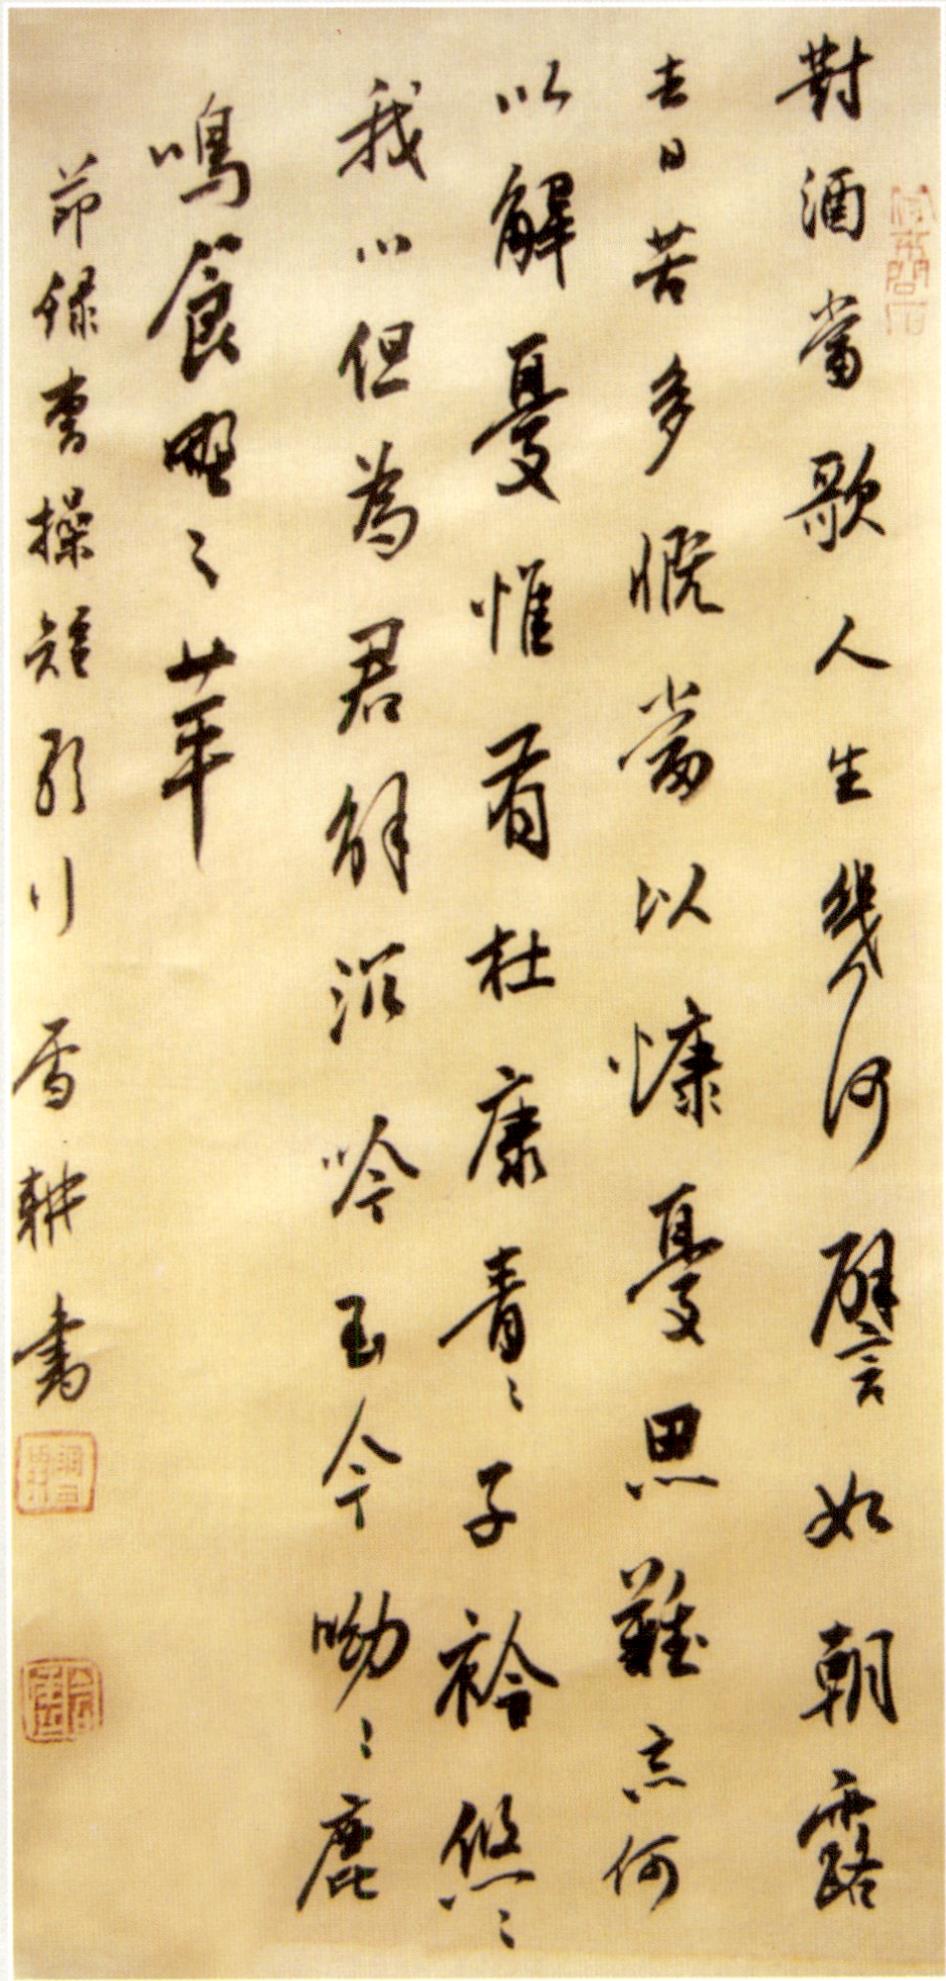 對酒當歌人生幾何譬如朝露
去日苦多慨當以慷憂思難忘何
以解憂惟有杜康青々子衿悠々
我心但為君故沉吟至今呦々鹿
鳴食野之苹
節錄曹操短歌行 雪耕書